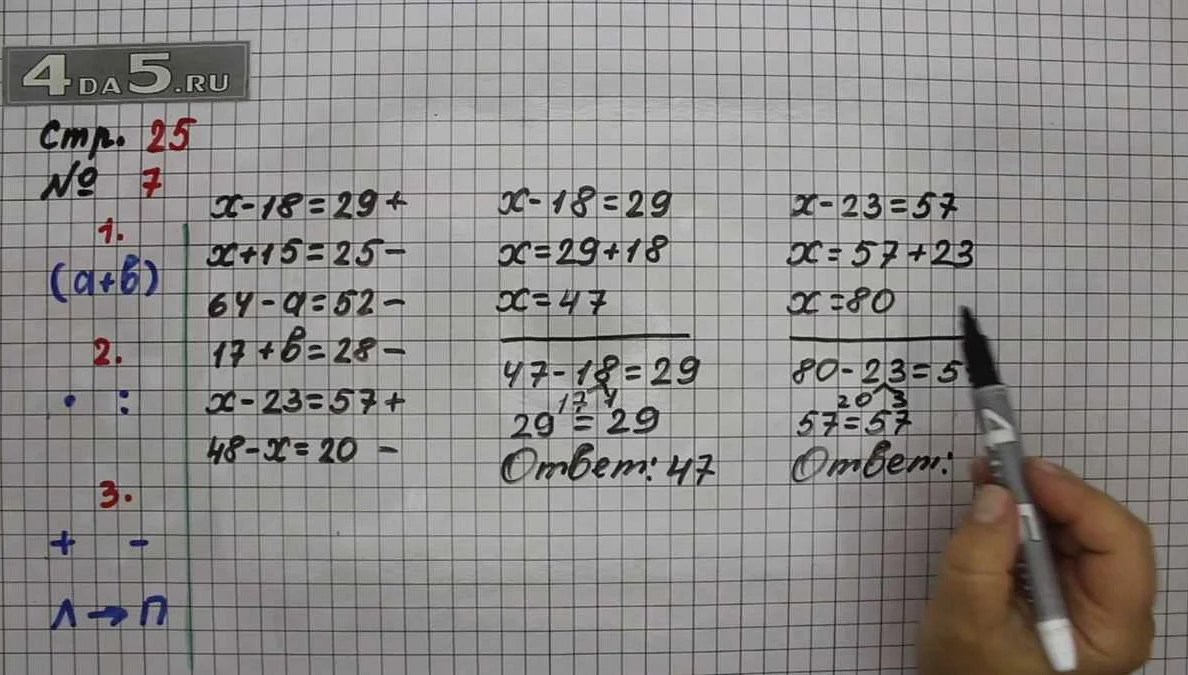 4DA5.RU
Стр. 25
№ 7
1.
(а+в)
2.
· :
3.
+ -
Л → П
х-18=29+
х+15=25-
64-а=52-
17+в=28-
х-23=57+
48-х=20 -
х-18=29
х=29+18
х=47
47-18=29
17 1
29=29
Ответ: 47
х-23=57
х=57+23
х=80
80-23=5
20 3
57=57
Ответ: